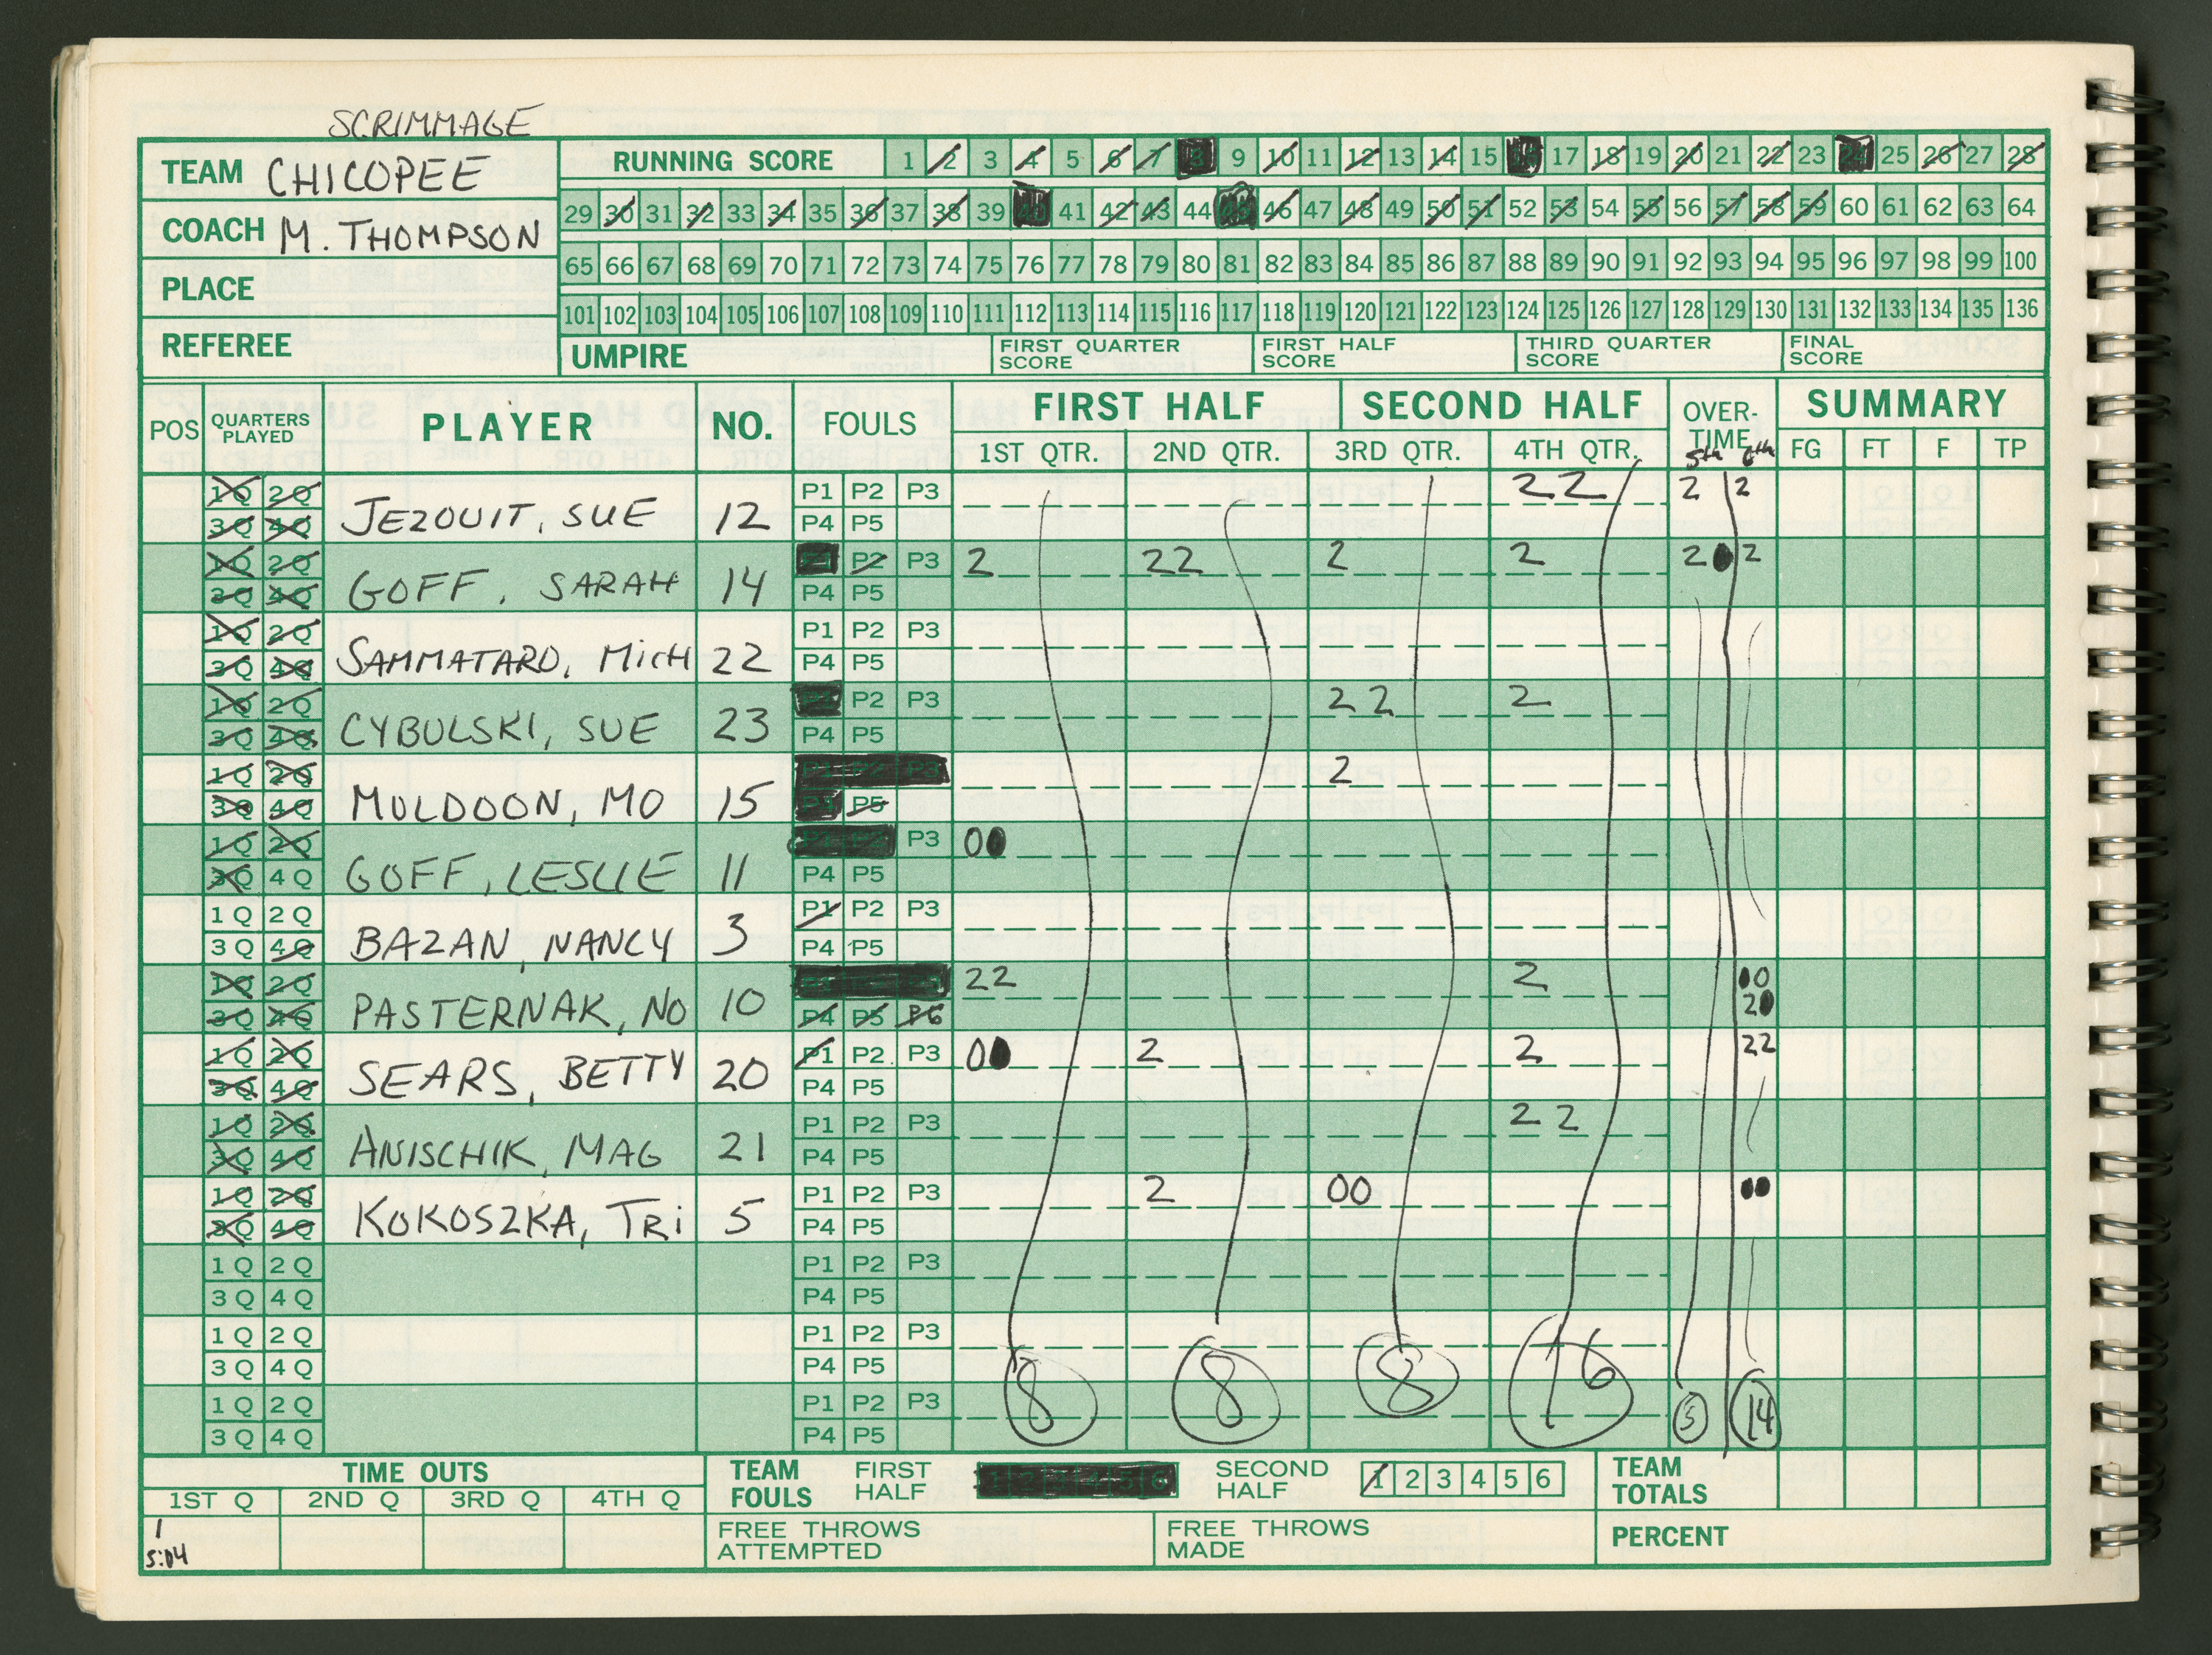 SCRIMMAGE
TEAM CHICOPEE
COACH M. THOMPSON
PLACE
REFEREE
RUNNING SCORE 1 2 3 4 5 6 7 8 9 10 11 12 13 14 15 16 17 18 19 20 21 22 23 24 25 26 27 28
29 30 31 32 33 34 35 36 37 38 39 40 41 42 43 44 45 46 47 48 49 50 51 52 53 54 55 56 57 58 59 60 61 62 63 64
65 66 67 68 69 70 71 72 73 74 75 76 77 78 79 80 81 82 83 84 85 86 87 88 89 90 91 92 93 94 95 96 97 98 99 100
101 102 103 104 105 106 107 108 109 110 111 112 113 114 115 116 117 118 119 120 121 122 123 124 125 126 127 128 129 130 131 132 133 134 135 136
UMPIRE FIRST QUARTER SCORE FIRST HALF SCORE THIRD QUARTER SCORE FINAL SCORE
POS QUARTERS PLAYED PLAYER NO. FOULS FIRST HALF SECOND HALF OVER-TIME SUMMARY
1ST QTR. 2ND QTR. 3RD QTR. 4TH QTR. 5th 6th FG FT F TP
1Q 2Q P1 P2 P3 22 2 2
3Q 4Q JEZOUIT, SUE 12 P4 P5
1Q 2Q P2 P3 2 22 2 2 20 2
3Q 4Q GOFF, SARAH 14 P4 P5
1Q 2Q P1 P2 P3
3Q 4Q SAMMATARO, MICH 22 P4 P5
1Q 2Q P2 P3 22 2
3Q 4Q CYBULSKI, SUE 23 P4 P5
1Q 2Q P1 P2 P3 2
3Q 4Q MULDOON, MO 15 P5
1Q 2Q P3 00
3Q 4Q GOFF, LESLIE 11 P4 P5
1Q 2Q P1 P2 P3
3Q 4Q BAZAN, NANCY 3 P4 P5
1Q 2Q 22 2 00
3Q 4Q PASTERNAK, NO 10 P4 P5 P6 20
1Q 2Q P1 P2 P3 00 2 2 22
3Q 4Q SEARS, BETTY 20 P4 P5
1Q 2Q P1 P2 P3 22
3Q 4Q ANISCHIK, MAG 21 P4 P5
1Q 2Q P1 P2 P3 2 00 00
3Q 4Q KOKOSZKA, TRI 5 P4 P5
1Q 2Q P1 P2 P3
3Q 4Q P4 P5
1Q 2Q P1 P2 P3
3Q 4Q P4 P5
8 8 8 16 5 14
1Q 2Q P1 P2 P3
3Q 4Q P4 P5
TIME OUTS TEAM FOULS FIRST HALF 1 2 3 4 5 6 SECOND HALF 1 2 3 4 5 6 TEAM TOTALS
1ST Q 2ND Q 3RD Q 4TH Q
1
5:04
FREE THROWS ATTEMPTED FREE THROWS MADE PERCENT